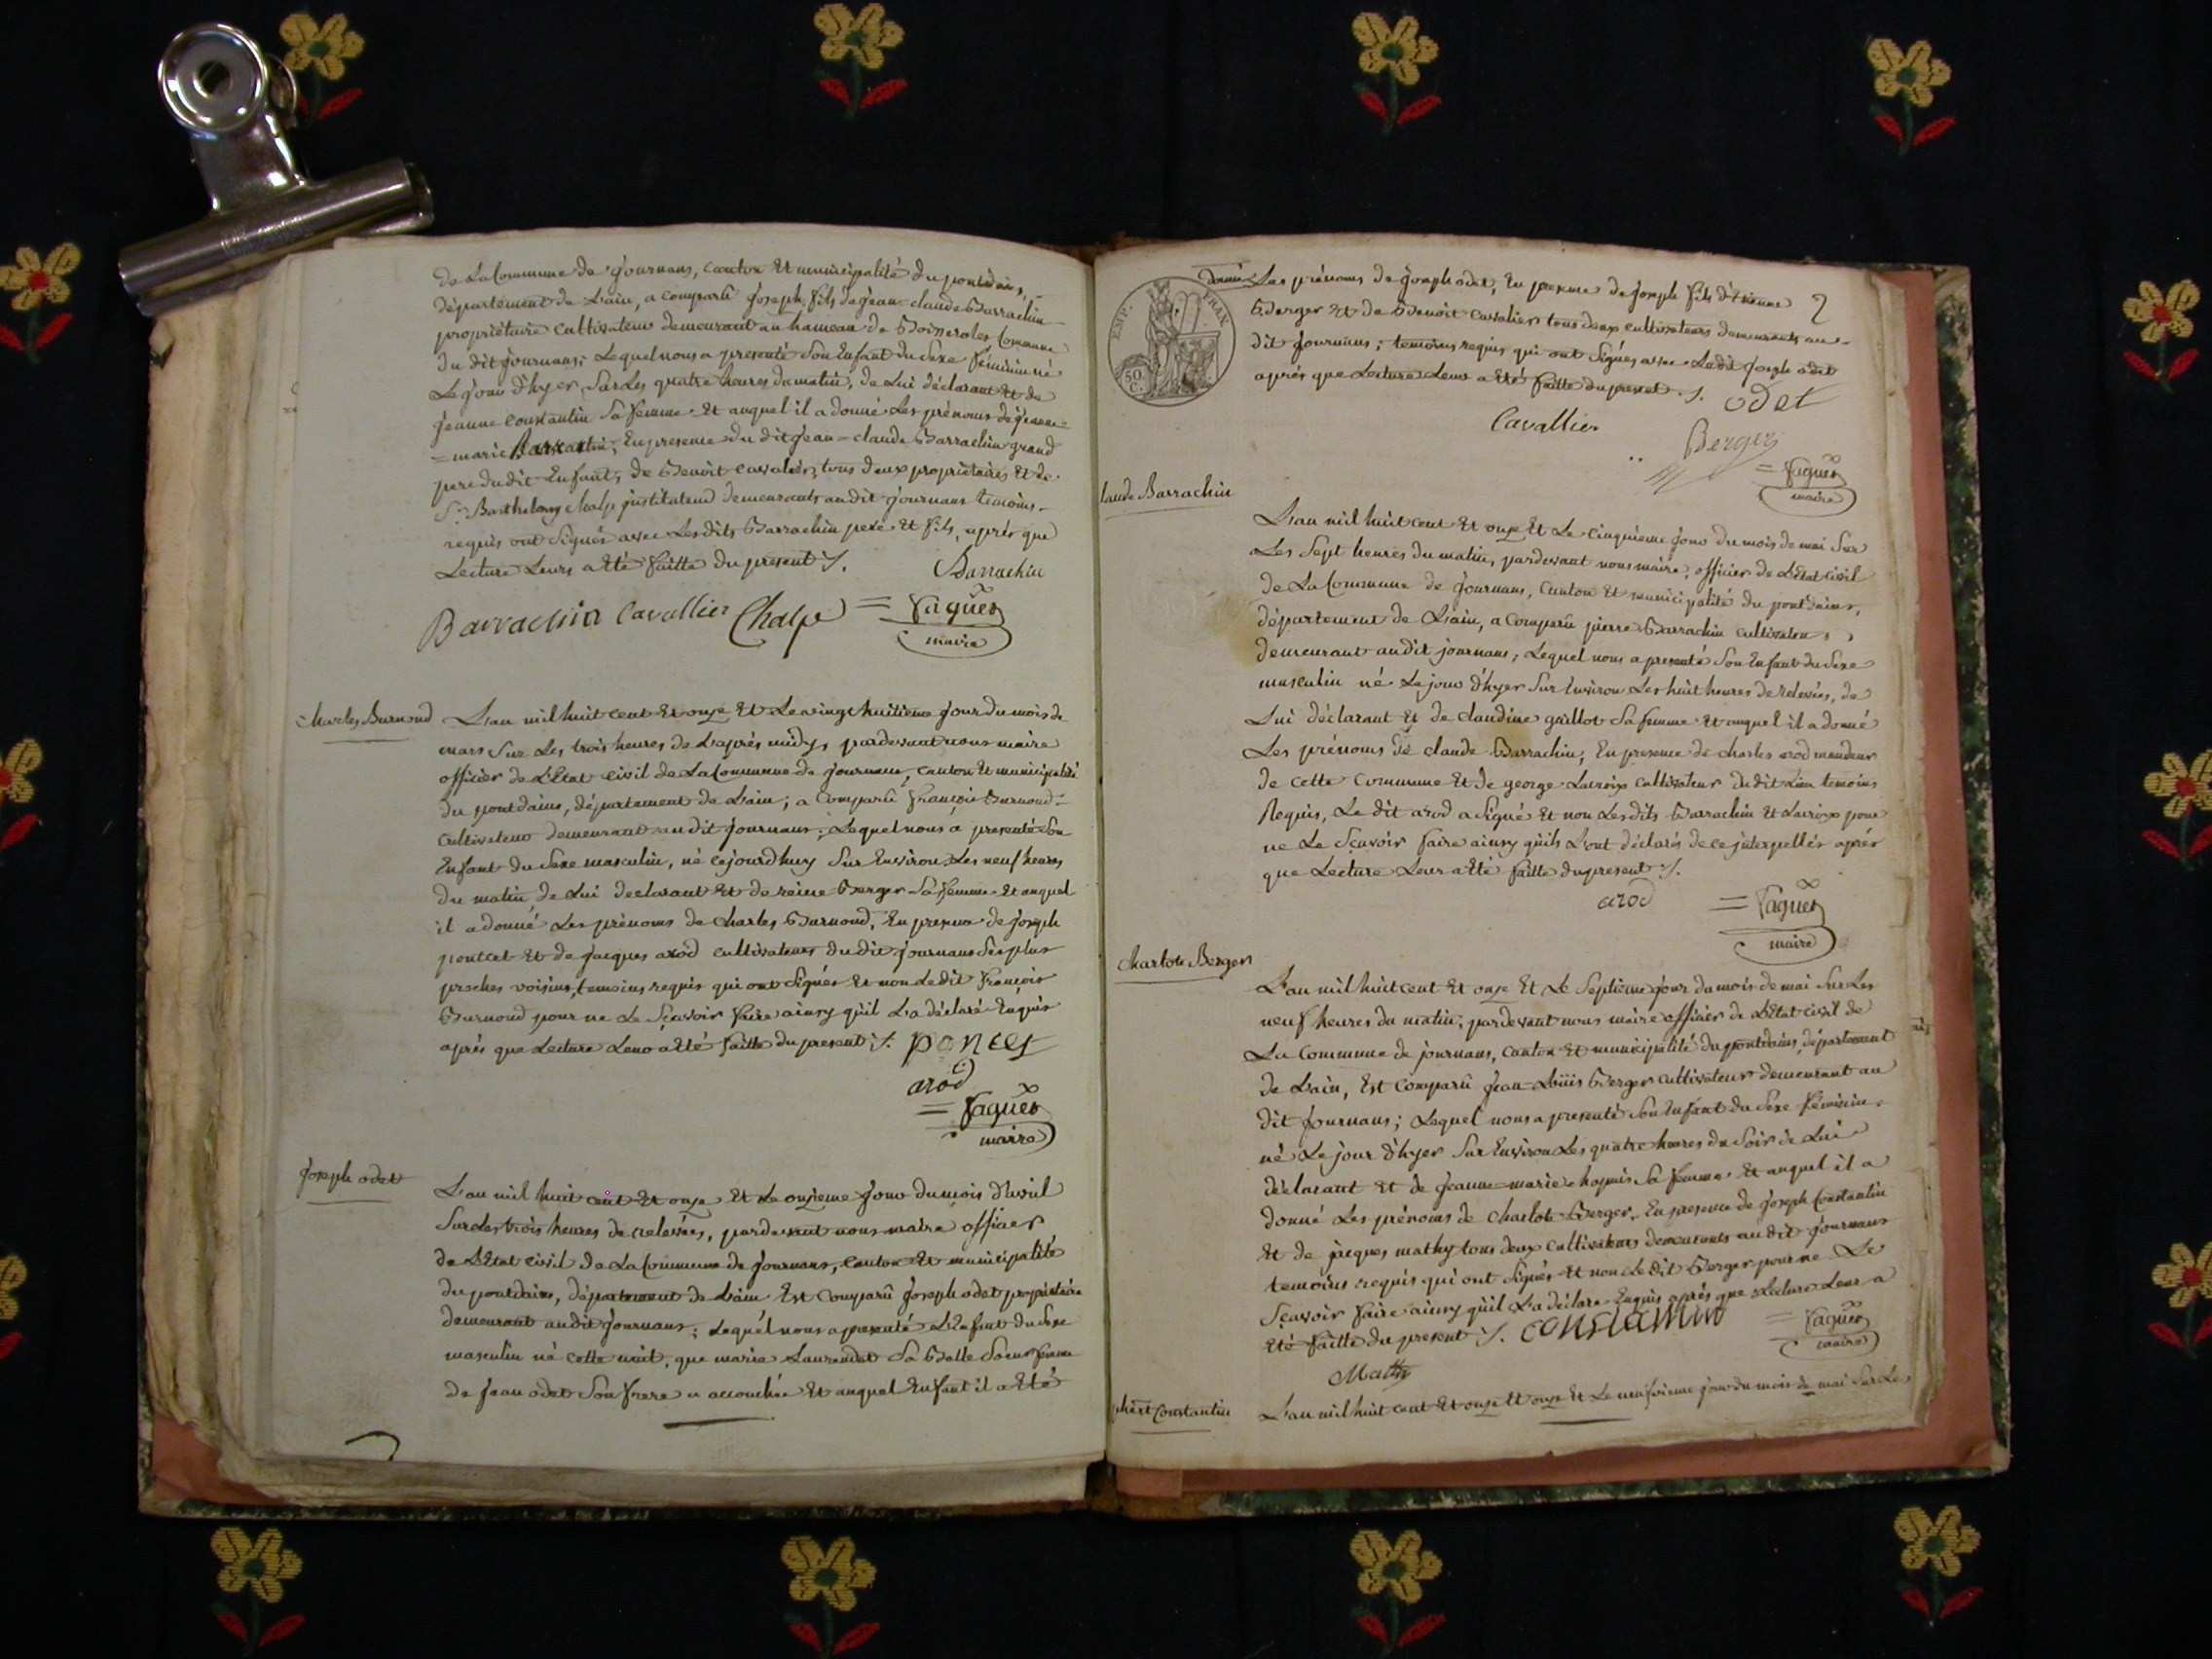 de La Commune de Journans, canton Et municipalité du pontdains,
département de L'ain, a comparû Joseph fils de Jean claude Barrachin
propriétaire cultivateur demeurant au hameau de Boisserolles Commune
du dit Journans; Lequel nous a presenté Son Enfant du Sexe féminin né
Le Jour d'hyer, Sur Les quatre heures du matin, de Lui déclarant Et de
Jeanne Constantin Sa femme Et auquel il a donné Les prénoms de Jeanne=
=marie Barrachin, En presence du dit Jean=claude Barrachin grand
pere du dit Enfant, de Benoit cavalier, tous deux propriétaires Et de
Sr. Barthelemy Chalp justitateur demeurants au dit Journans temoins
requis ont Signés avec Lesdits Barrachin pere Et fils, après que
Lecture Leurs a Eté faitte du présent ./.
Barrachin
Barrachin Cavallier Chalp = Vaguer
maire
Charles Burnond
L'an mil huit cent Et onze Et Le vingt huitieme Jour du mois de
mars Sur Les trois heures de L'après midy, pardevant nous maire
officier de L'Etat civil de La Commune de Journans, canton Et municipalité
du pontdains, département de L'ain; a Comparû François Burnond
cultivateur demeurant au dit Journans; Lequel nous a presenté Son
Enfant du Sexe masculin, né cejourdhuy Sur Environ Les neuf heures
du matin de Lui déclarant Et de reine Berger Sa femme Et auquel
il a donné Les prénoms de Charles Burnond, En presence de Joseph
poncet Et de Jacques arod cultivateurs du dit Journans Ses plus
proches voisins, temoins requis qui ont Signés Et non Le dit François
Burnond pour ne Le Sçavoir faire ainsy qu'il L'a déclaré Enquis
après que Lecture Leur a Eté faitte du present ./. poncet
arod
= Vaguer
maire
Joseph odet
L'an mil huit cent Et onze Et Le onzieme Jour du mois d'avril
Sur Les trois heures de relevées, pardevant nous maire officier
de L'Etat civil de La Commune de Journans, canton Et municipalité
du pontdains, département de L'ain Est Comparû Joseph odet propriétaire
demeurant au dit Journans; Lequel nous a presenté L'Enfant du Sexe
masculin né cette nuit, que marie Laurendet Sa Belle Soeur femme
de Jean odet Son frere a accouchée Et auquel Enfant il a Eté
EMP. FRAN.
50 C.
donné Les prénoms de Joseph odet, En presence de Joseph fils d'Etienne
Berger Et de Benoit Cavalier tous deux cultivateurs demeurants au
dit Journans; temoins requis qui ont Signés avec Le dit Joseph odet
après que Lecture Leur a Eté faitte du present ./. odet
Cavallier
Berger
= Vaguer
maire
laude Barrachin
L'an mil huit cent Et onze Et Le Cinquieme Jour du mois de mai Sur
Les Sept heures du matin, pardevant nous maire, officier de L'Etat civil
de La Commune de Journans, Canton Et municipalité du pontdains,
département de L'ain, a Comparû pierre Barrachin cultivateur,
demeurant au dit journans; Lequel nous a presenté Son Enfant du Sexe
masculin né Le jour d'hyer Sur Environ Les huit heures de relevées, de
Lui déclarant Et de claudine guillot Sa femme Et auquel il a donné
Les prénoms de claude Barrachin; En presence de charles arod mandeur
de cette Commune Et de george Lacroix cultivateur du dit Lieu temoins
Requis, Le dit arod a Signé Et non Les dits Barrachin Et Lacroix pour
ne Le Sçavoir faire ainsy qu'ils L'ont déclarés de ce jnterpellés après
que Lecture Leur a Eté faitte du present ./.
arod
= Vaguer
maire
Charlote Berger
L'an mil huit cent Et onze Et Le Septieme jour du mois de mai Sur Les
neuf heures du matin, pardevant nous maire officier de L'Etat civil de
La Commune de journans, canton Et municipalité du pontdains, département
de L'ain, Est Comparû Jean Loüis Berger cultivateur demeurant au
dit Journans; Lequel nous a presenté Son Enfant du Sexe féminin
né Le jour d'hyer Sur Environ Les quatre heures du Soir de Lui
déclarant Et de Jeanne=marie Sa femme Et auquel il a
donné Les prénoms de Charlote Berger, En presence de Joseph Constantin
Et de jacques mathy tous deux cultivateurs demeurants au dit Journans
temoins requis qui ont Signés Et non Le dit Berger pour ne Le
Sçavoir faire ainsy qu'il L'a déclaré Enquis après que Lecture Leur a
Eté faitte du present ./. constantin = Vaguer
maire
Mathy
Constantin
L'an mil huit cent Et onze Et onze Et Le neufvieme jour du mois de mai Sur Les